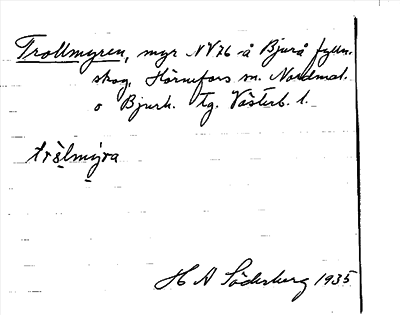 Trollmyren, myr NV76 å Bjurå fylln.
skog, Hörnefors sn. Nordmal.
o Bjurh. tg. Västerb. l.
trålmýra
H A Söderberg 1935